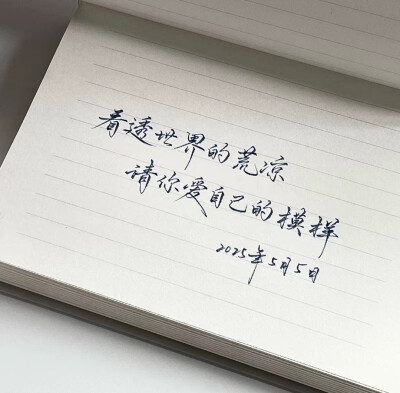 看透世界的荒凉
请你爱自己的模样
2025年5月5日